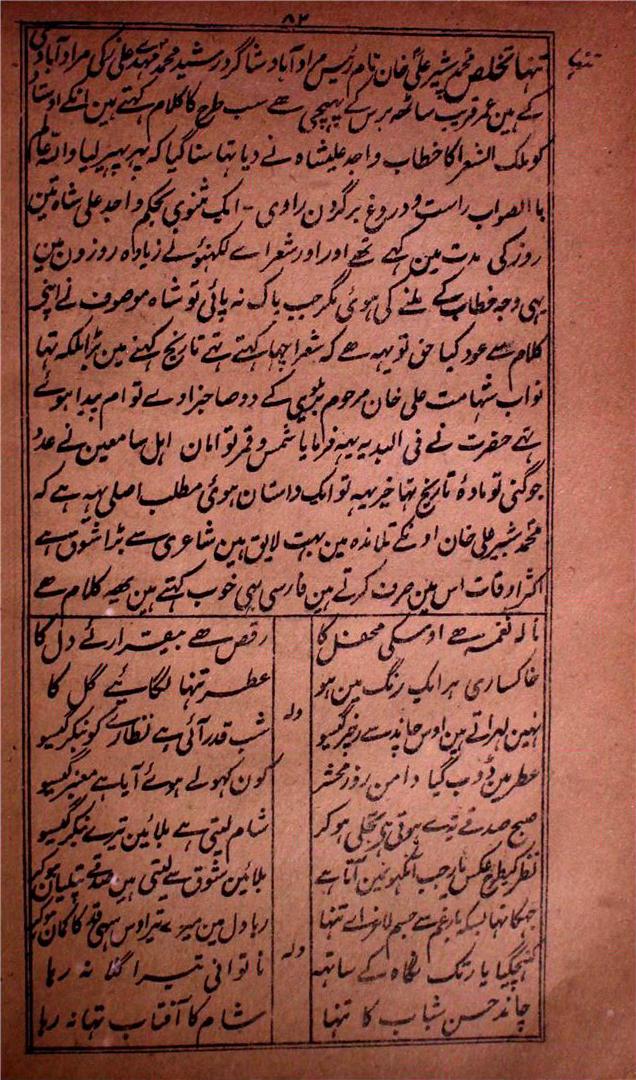 ۸۲
تنہا
تنہا تخلص محمد شیر علی خان نام رئیس مراد آباد شاگرد رشید محمد مہدی علی زکی مراد آبادی
کے ہین عمر قریب ساٹھ برس کے پہنچی ہے سب طرح کا کلام کہتے ہین انکے اوستاد
کو ملک الشعرا کا خطاب واجد علیشاہ نے دیا تھا سنا گیا کہ پھر پھیر لیا واللہ عالم
با الصواب راست و دروغ بر گردن راوی - ایک مثنوی بحکم واجد علی شاہ تین
روز کی مدت مین کہے تھے اور اور شعراے لکھنؤ نے زیادہ روزون مین
یہی وجہ خطاب کے ملنے کی ہوئی مگر جب باک نہ پائی تو شاہ موصوف نے اپنے
کلام سے عود کیا حق تو یہہ ہے کہ شعر اچھا کہتے تھے تاریخ کہنے مین بڑا ملکہ تھا
نواب شہامت علی خان مرحوم کے دو صاحبزادے توام پیدا ہوئے
تھے حضرت نے فی البدیہ یہہ فرمایا شمس و قمر توامان اہل سامعین نے عدد
جو گنی تو مادۂ تاریخ تھا خیر یہہ تو ایک داستان ہوئی مطلب اصلی یہہ ہے کہ
محمد شیر علی خان اونکے تلامذہ مین بہت لایق ہین شاعری سے بڑا شوق ہے
اکثر اوقات اس مین صرف کرتے ہین فارسی بھی خوب کہتے ہین یہہ کلام ہے
نالہ نغمہ ہے اوسکی محفل کا رقص ہے بیقرارئے دل کا
خاکساری ہر ایک رنگ مین ہو عطر تنہا لگائیے گل کا
ولہ
نہین لہراتے ہین اوس چاند سے رخ پر گیسو شب قدر آئی ہے نظارے کو بنکر گیسو
عطر مین ڈوب گیا دامن روز محشر کون کھولے ہوئے آیا ہے معنبر گیسو
صبح صدقے ہوتی ہے تجلی ہو کر شام لیتی ہے بلائین تیرے بنکر گیسو
نظر عکس یار جب آنکھونمین آتا ہے بلائین شوق سے لیتی ہین پتلیان ہو کر
جھکا تنہا بسکہ بار غم سے جسم لاغر اے تنہا رہا دل مین میرے تیر اوس کا کمان ہو کر
ولہ
کھنچ گیا یار تک نگاہ کے ساتہہ ناتوانی تیرا گلا نہ رہا
چاند حسن شباب کا تنہا شام کا آفتاب تھا نہ رہا